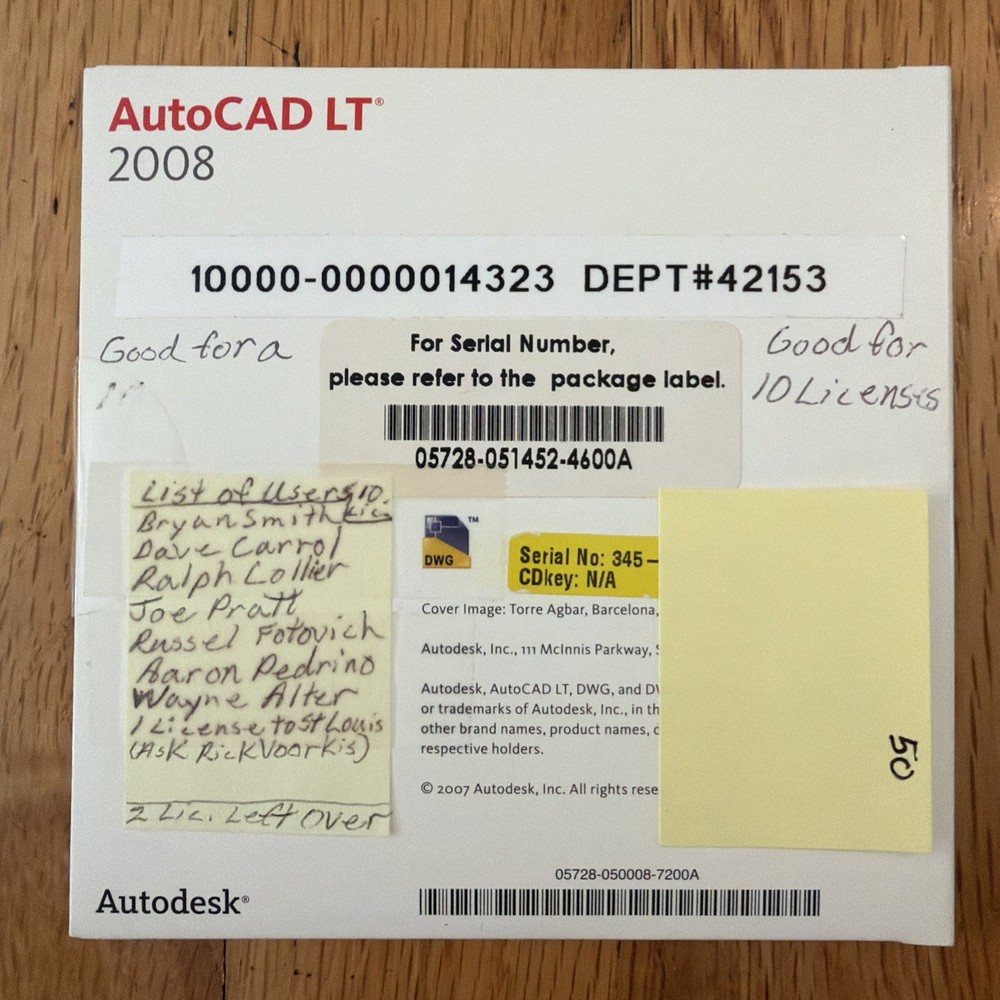 AutoCAD LT®
2008
10000-0000014323 DEPT#42153
Good for a
For Serial Number,
please refer to the package label.
05728-051452-4600A
Good for
10 Licenses
List of Users 10
Lic
Bryan Smith
Dave Carrol
Ralph Collier
Joe Pratt
Russel Fotovich
Aaron Pedrino
Wayne Alter
1 License to St Louis
(Ask Rick Voorkis)
2 Lic. Left Over
™
DWG
Serial No: 345-
CDkey: N/A
Cover Image: Torre Agbar, Barcelona,
Autodesk, Inc., 111 McInnis Parkway,
Autodesk, AutoCAD LT, DWG, and
or trademarks of Autodesk, Inc., in th
other brand names, product names, c
respective holders.
© 2007 Autodesk, Inc. All rights rese
50
05728-050008-7200A
Autodesk®